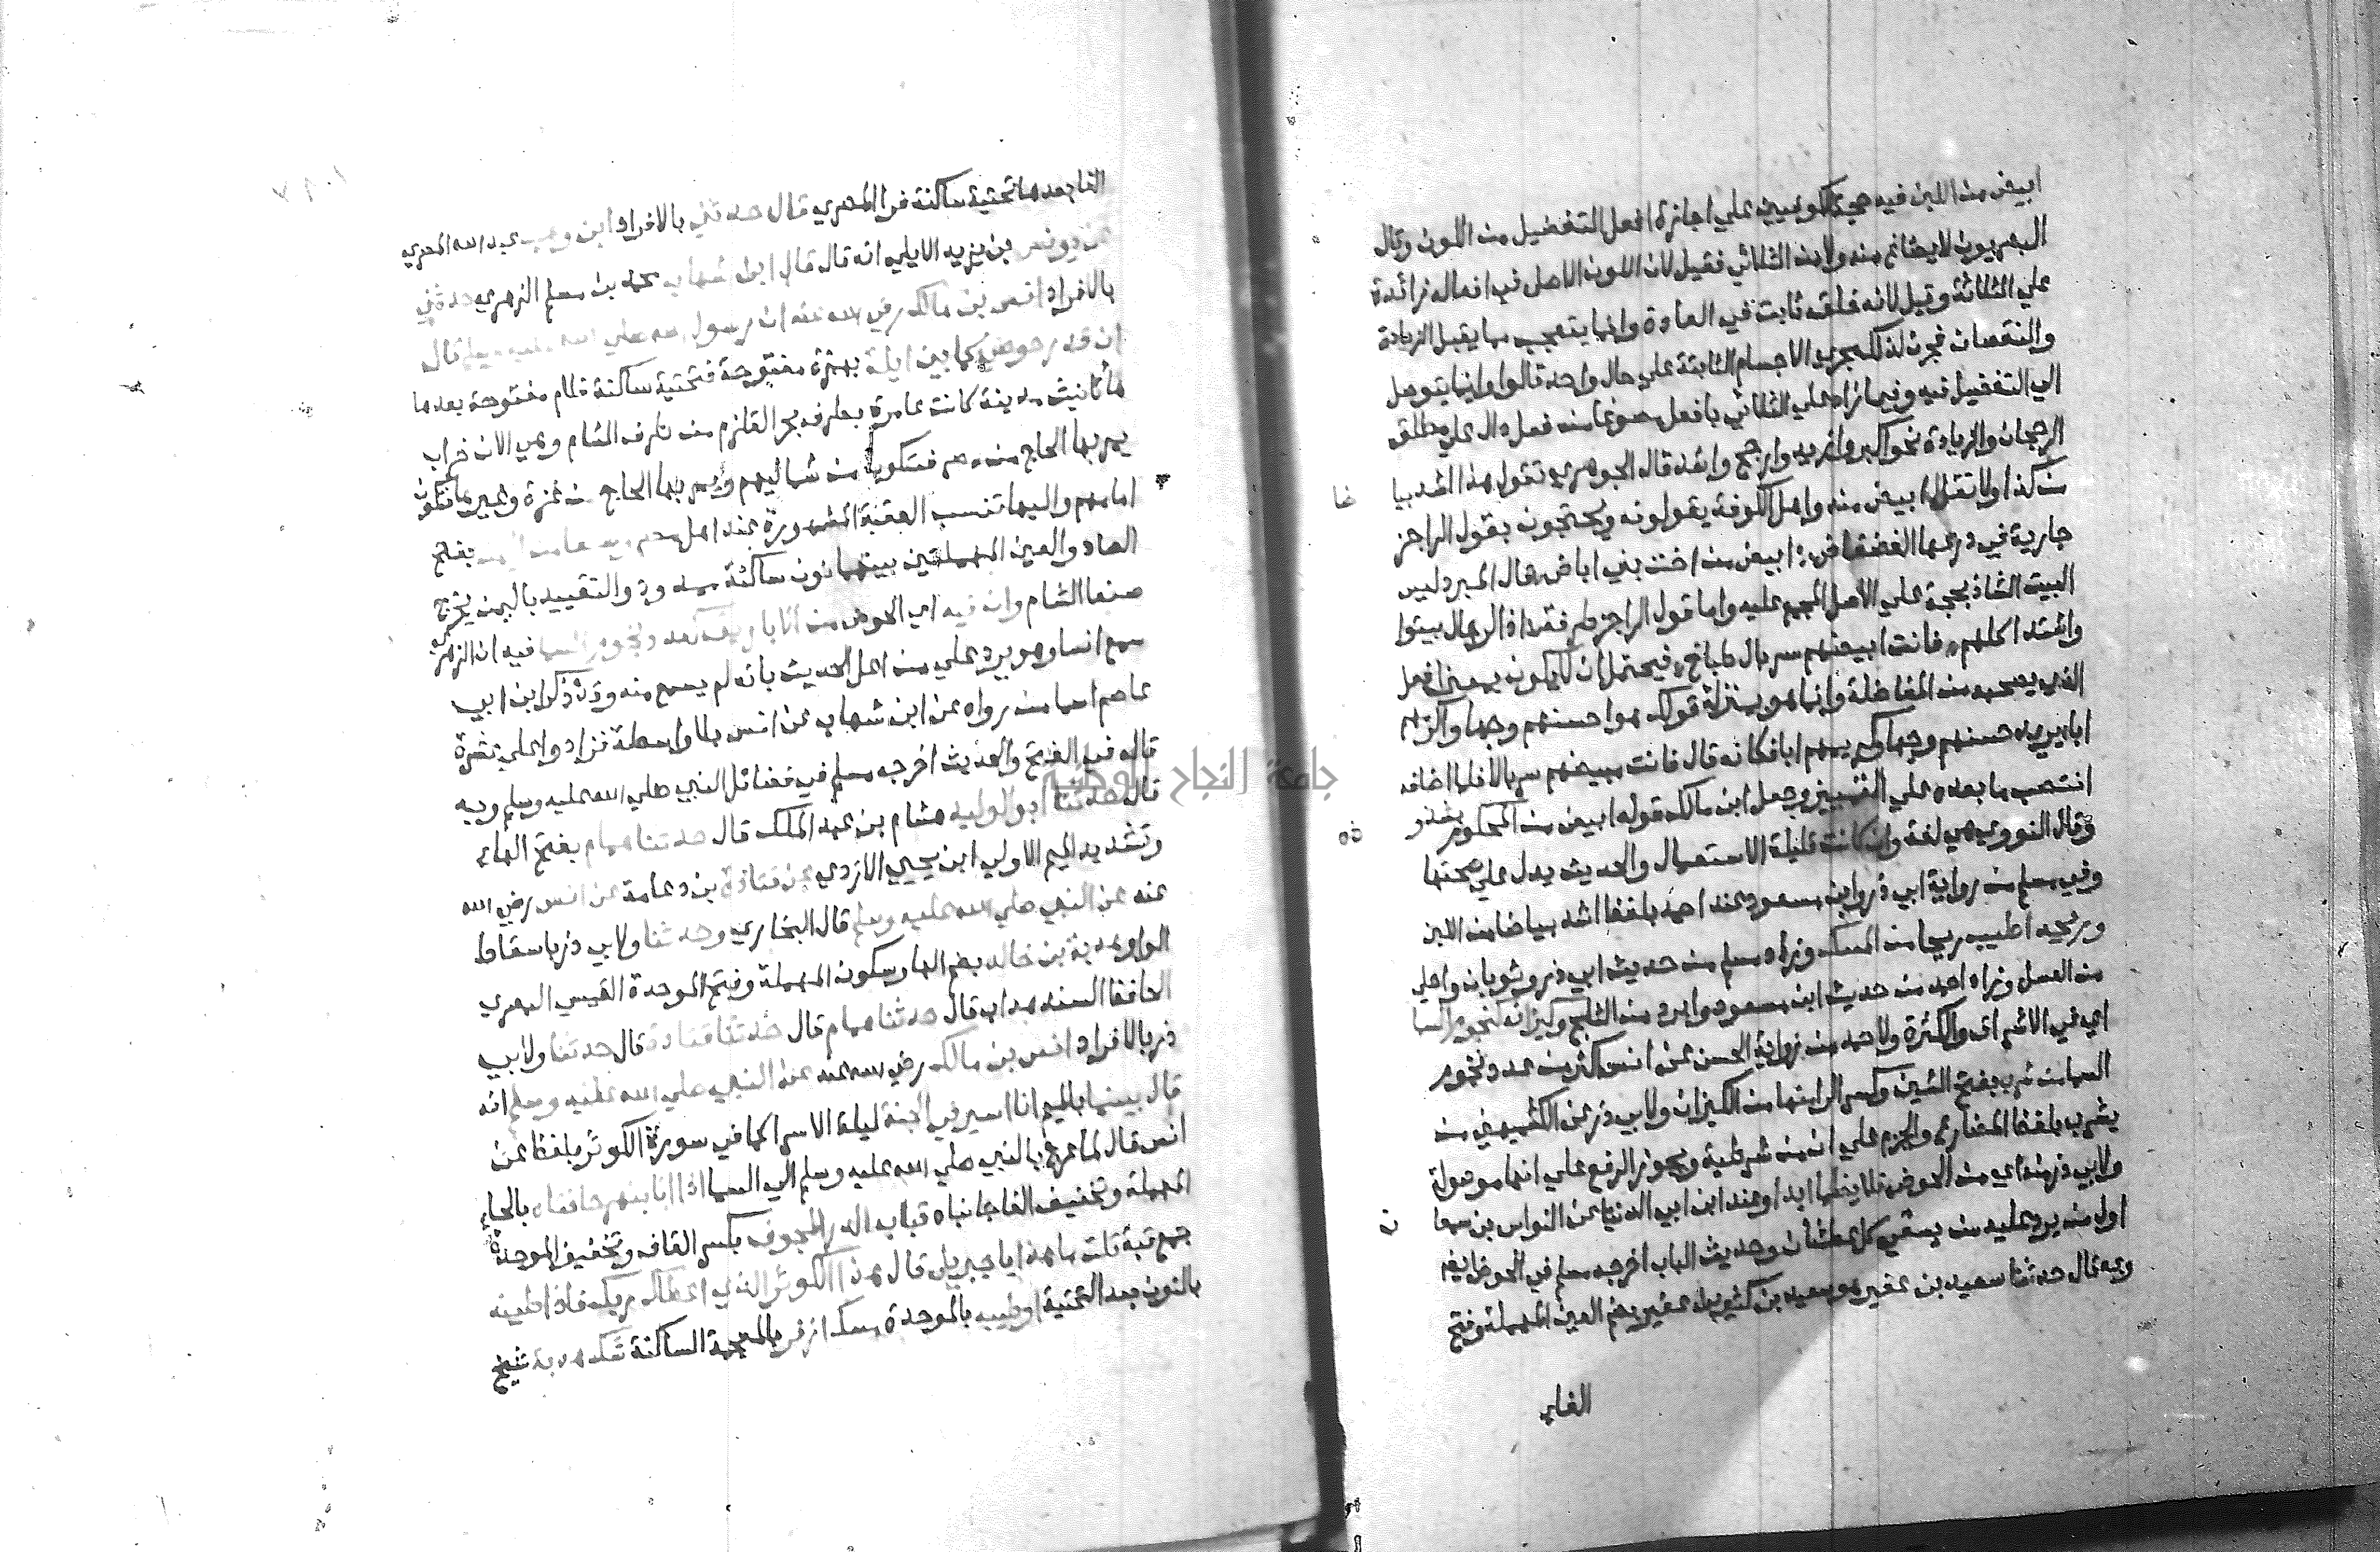 ابيض من اللبن فيه حجة للكوفيين علي اجازة افعل التفضيل من اللون وقال
البصريون لا يصاغ منه ولا من الثلاثي فقيل لان اللون الاصل في افعاله زائدة
علي الثلاثة وقيل لانه خلق ثابت في العادة وانما يتعجب مما يقبل الزيادة
والنقصان فجرت لذلك مجري الاجسام الثابتة علي حال واحد قالوا وانما يتوصل
الي التفضيل فيه وفيما زاد علي الثلاثي بافعل مصوغا من فعل دال علي مطلق
الرجحان والزيادة نحو اكبر وازيد وارجح واشد قال الجوهري تقول هذا اشد بيا ضا
من كذا ولا تقل ابيض منه واهل الكوفة يقولونه ويحتجون بقول الراجز
جارية في درعها الفضفاض ابيض من اخت بني اباض قال المبرد ليس
البيت الشاذ بحجة علي الاصل المجمع عليه واما قول الراجز اذا الرجال شتوا
واشتد اكلهم فانت ابيضهم سربال طباخ فيحتمل ان لا يكون بمعني افعل
الذي يصحبه من المفاضلة وانما هو بمنزلة قولك هو احسنهم وجها واكرمهم
ابا يريد حسنهم وجها وكريمهم ابا فكانه قال فانت مبيضهم سربالا فلما اضافه
انتصب ما بعده علي التمييز وجعل ابن مالك قوله ابيض من المحكوم بشذوذه
وقال النووي هي لغة وان كانت قليلة الاستعمال والحديث يدل علي صحتها
وفي مسلم من رواية ابي ذر وابن مسعود عند احمد بلفظ اشد بياضا من اللبن
وريحه اطيب ريحا من المسك وزاد مسلم من حديث ابي ذر وثوبان واحلي
من العسل وزاد احمد من حديث ابن مسعود وابرد من الثلج وكيزانه كنجوم السما
اي في الاشراق والكثرة ولاحمد من رواية الحسن عن انس اكثر من عدد نجوم
السما من شرب بفتح الشين وكسر الرا منها من الكيزان ولابي ذر عن الكشميهني من
يشرب بلفظ المضارع والجزم علي ان من شرطية ويجوز الرفع علي انها موصولة
ولابي ذر منه اي من الحوض فلا يظما ابدا وعند ابن ابي الدنيا عن النواس بن سمعا ن
اول من يرد عليه من يسقي كل عطشان وحديث الباب اخرجه مسلم في الحوض ايضا
وبه قال حدثنا سعيد بن عفير هو سعيد بن كثير بن عفير بضم العين المهملة وفتح
الفاء
الفا بعدها تحتية ساكنة فرا المصري قال حدثني بالافراد ابن وهب عبد الله المصري
عن يونس بن يزيد الايلي انه قال قال ابن شهاب محمد بن مسلم الزهري حدثني
بالافراد انس بن مالك رضي الله عنه ان رسول الله صلي الله عليه وسلم قال
ان قدر حوضي كما بين ايلة بهمزة مفتوحة فتحتية ساكنة فلام مفتوحة بعدها
ها تانيث مدينة كانت عامرة بطرف بحر القلزم من طرف الشام وهي الان خراب
يمر بها الحاج من مصر فتكون من شماليهم ويمر بها الحاج من غزة وغيرها فتكون
امامهم واليها تنسب العقبة المشهورة عند اهل مصر وصنعا من اليمن بفتح
الصاد والعين المهملتين بينهما نون ساكنة ممدود والتقييد باليمن يخرج
صنعا الشام وان فيه اي الحوض من الاباريق كعدد نجوم السما فيه ان الزهري
سمع انسا وهو يرد علي من اعل الحديث بانه لم يسمع منه وقد ذكر ابن ابي
عاصم اسما من رواه عن ابن شهاب عن انس بلا واسطة فزادوا علي عشرة
قاله في الفتح والحديث اخرجه مسلم في فضائل النبي صلي الله عليه وسلم وبه
قال حدثنا ابو الوليد هشام بن عبد الملك قال حدثنا همام بفتح الهاء
وتشديد الميم الاولي ابن يحيي الازدي عن قتادة بن دعامة عن انس رضي الله
عنه عن النبي صلي الله عليه وسلم قال البخاري وحدثنا ولابي ذر باسقاط
الواو هدبة بن خالد بضم الها وسكون المهملة وفتح الموحدة القيسي البصري
الحافظ المسند هداب قال حدثنا همام قال حدثنا قتادة قال حدثنا ولابي
ذر بالافراد انس بن مالك رضي الله عنه عن النبي صلي الله عليه وسلم انه
قال بينما بالميم انا اسير في الجنة ليلة الاسرا كما في سورة الكوثر بلفظ عن
انس قال لما عرج بالنبي صلي الله عليه وسلم الي السما اذا انا بنهر حافتاه بالحاء
المهملة وتخفيف الفا جانباه قباب الدر المجوف بكسر القاف وتخفيف الموحدة
جمع قبة قلت ما هذا يا جبريل قال هذا الكوثر الذي اعطاك ربك فاذا طينه
بالنون بعد التحتية او طيبه بالموحدة مسك اذفر بالمعجمة الساكنة شك هدبة شيخ
جامعة النجاح الوطنية